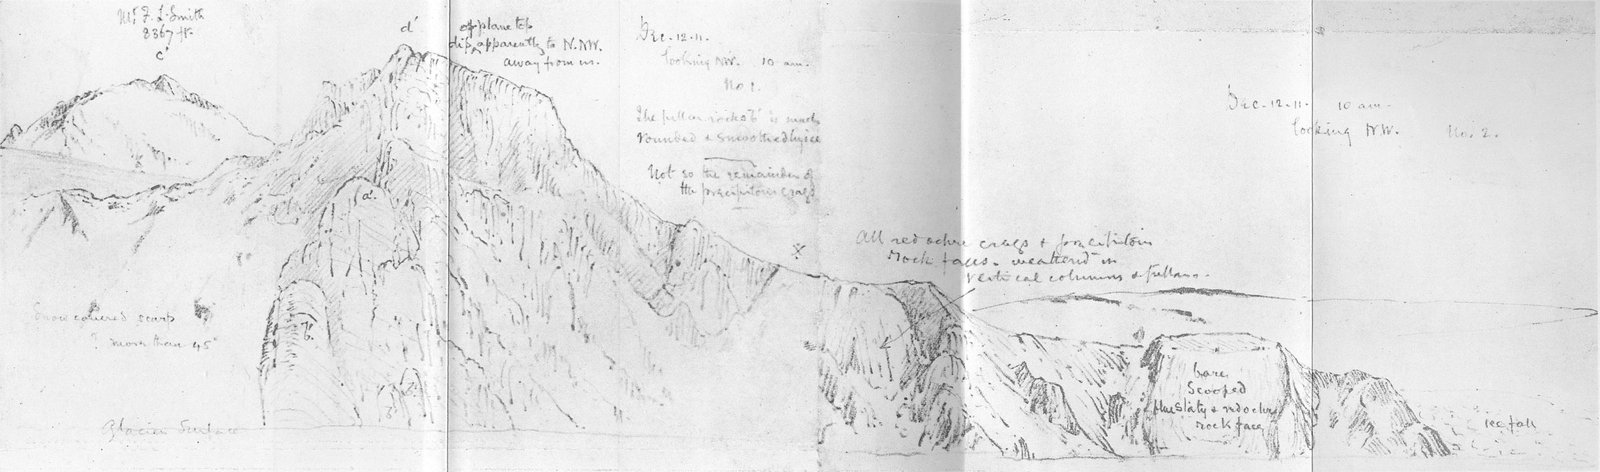 Mt F. L. Smith
8367 ft.
c'
d'
of plane top
dip, apparently to N.NW.
away from us.
Dec. 12. 11.
looking NW. 10 am.
No 1.
The pillar rocks "b" is much
rounded & smoothed by ice
Not so the remainder of
the precipitous crags
Dec. 12. 11. 10 am.
looking NW. No. 2.
a'
b'
x
All red ochre crags & precipitous
rock faces. weathered in
vertical columns & pillars.
Snow covered scarp
? more than 45°
Glacier Surface
bare
Scooped
blue slaty & red ochre
rock face
ice fall